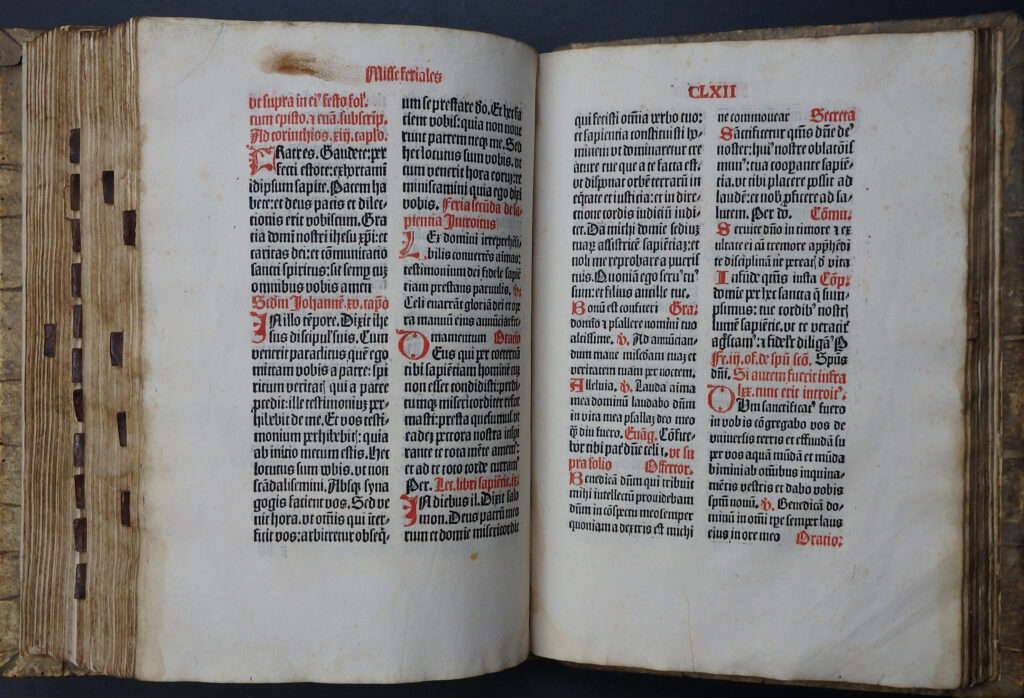 Misse feriales
vt supra in ei⁹ festo sol'.
cum episto. ⁊ euā. subscrip.
Ad corinthios. xiij. caplo.
FRatres. Gaudete: per
fecti estote: exhortamini
idipsum sapite. Pacem ha
bete: et deus pacis et dilec-
tionis erit vobiscum. Gra
tia domī nostri ihesu xp̄i: et
caritas dei: et cōmunicatio
sancti spiritus: sit semp cū
omnibus vobis amen
Scdm Johannē. xv. capło
IN illo tēpore. Dixit ihe
sus discipul' suis. Cum
venerit paraclitus quē ego
mittam vobis a patre: spi
ritum veritatꝭ qui a patre
ꝓcedit: ille testimoniuꝫ per-
hibebit de me. Et vos testi-
monium perhibebitꝭ: quia
ab initio mecum estis. Hec
locutus sum vobis. vt non
scādalisemini. Absqꝫ syna
gogis facient vos. Sed ve
nit hora. vt om̄is qui īter-
ficit vos: arbitretur obseq̄-
um se prestare dō. Et hec fa
cient vobis: quia non noue
runt patrem neqꝫ me. Sed
hec locutus sum vobis. vt
cum venerit hora eoruꝫ: re
miniscamini quia ego dixi
vobis. Feria secūda de sa-
pientia Introitus
LEx domini irreprehēsi
bilis conuertēs aīmas:
testimonium dei fidele sapiē
ciam prestans paruulis. ꝟ.
Celi enarrāt gloriā dei et op
ra manuū eius annūciat fir-
mamentum Oratio
DEus qui per coeternā
tibi sapiētiam hominē cū
non esset condidisti: perdi
tumqꝫ misericorditer refor
masti: presta quesumus vt
eadē pectora nostra inspi
rante te tota mēte amem⁹:
et ad te toto corde curram⁹
Per. Lec. libri sapiētie. ix.
IN diebus il. Dixit salo
mon. Deus patrū meo
rum et domīe misericordie
CLXII
qui fecisti om̄ia verbo tuo:
et sapientia constituisti ho-
minem vt dominaretur cre
ature tue que a te facta est.
vt disponat orbē terrarū in
eq̄tate et iusticia: et in dire-
ctione cordis iudiciū iudi-
cet. Da michi domīe sediū
tuaꝝ assistricē sapiētiaꝫ: et
noli me reprobare a pueris
tuis. Quoniā ego seru⁹ tu⁹
sum: et filius ancille tue.
Bonū est confiteri Gra.
domīo ⁊ psallere nomini tuo
altissime. ꝟ. Ad annūcian-
dum mane miscdiam tuaꝫ et
veritatem tuam per noctem.
Alleluia. ꝟ. Lauda aīma
mea dominū laudabo dn̄m
in vita mea psallaꝫ deo meo
q̄ diu fuero. Euāg. Cōfite-
bor tibi pat' dn̄e celi ⁊. vt su
pra folio Offertor.
Benedicā dn̄m qui tribuit
mihi intellectū prouidebam
dn̄m in cōspectu meo semper
quoniam a dextris est michi
ne commouear Secreta
Sāctificetur qs̄ns dn̄e de⁹
noster: hui⁹ nostre oblatōis
mun⁹: tua cooꝑante sapiē-
tia. vt tibi placere possit ad
laudē: et nob' ꝓficere ad sa-
lutem. Per dō. Cōmu.
Seruite dn̄o in timore ⁊ ex
ultate ei cū tremore app̄hēdi
te disciplinā ne pereatꝭ d' vita
Infūde qs̄ns iusta Cōp.
domīe per hec sancta q̄ sum-
psimus: tue cordib⁹ nostrꝭ
lumē sapiētie. vt te veracit'
agscam⁹: ⁊ fidelr diligā⁹ P
Fe. iij. of. de spū scō. Spūs
dn̄i. Si autem fuerit infra
lxx. tunc erit introit⁹.
DUm sanctificat⁹ fuero
in vobis cōgregabo vos de
vniuersis terris et effundā su
per vos aquā mūdā et mūda
bimini ab om̄ibus inquina-
mētis vestris et dabo vobis
spm̄ nouū. ꝟ. Benedicā do-
minū in om̄i tp̄e semper laus
eius in ore meo Oratio: